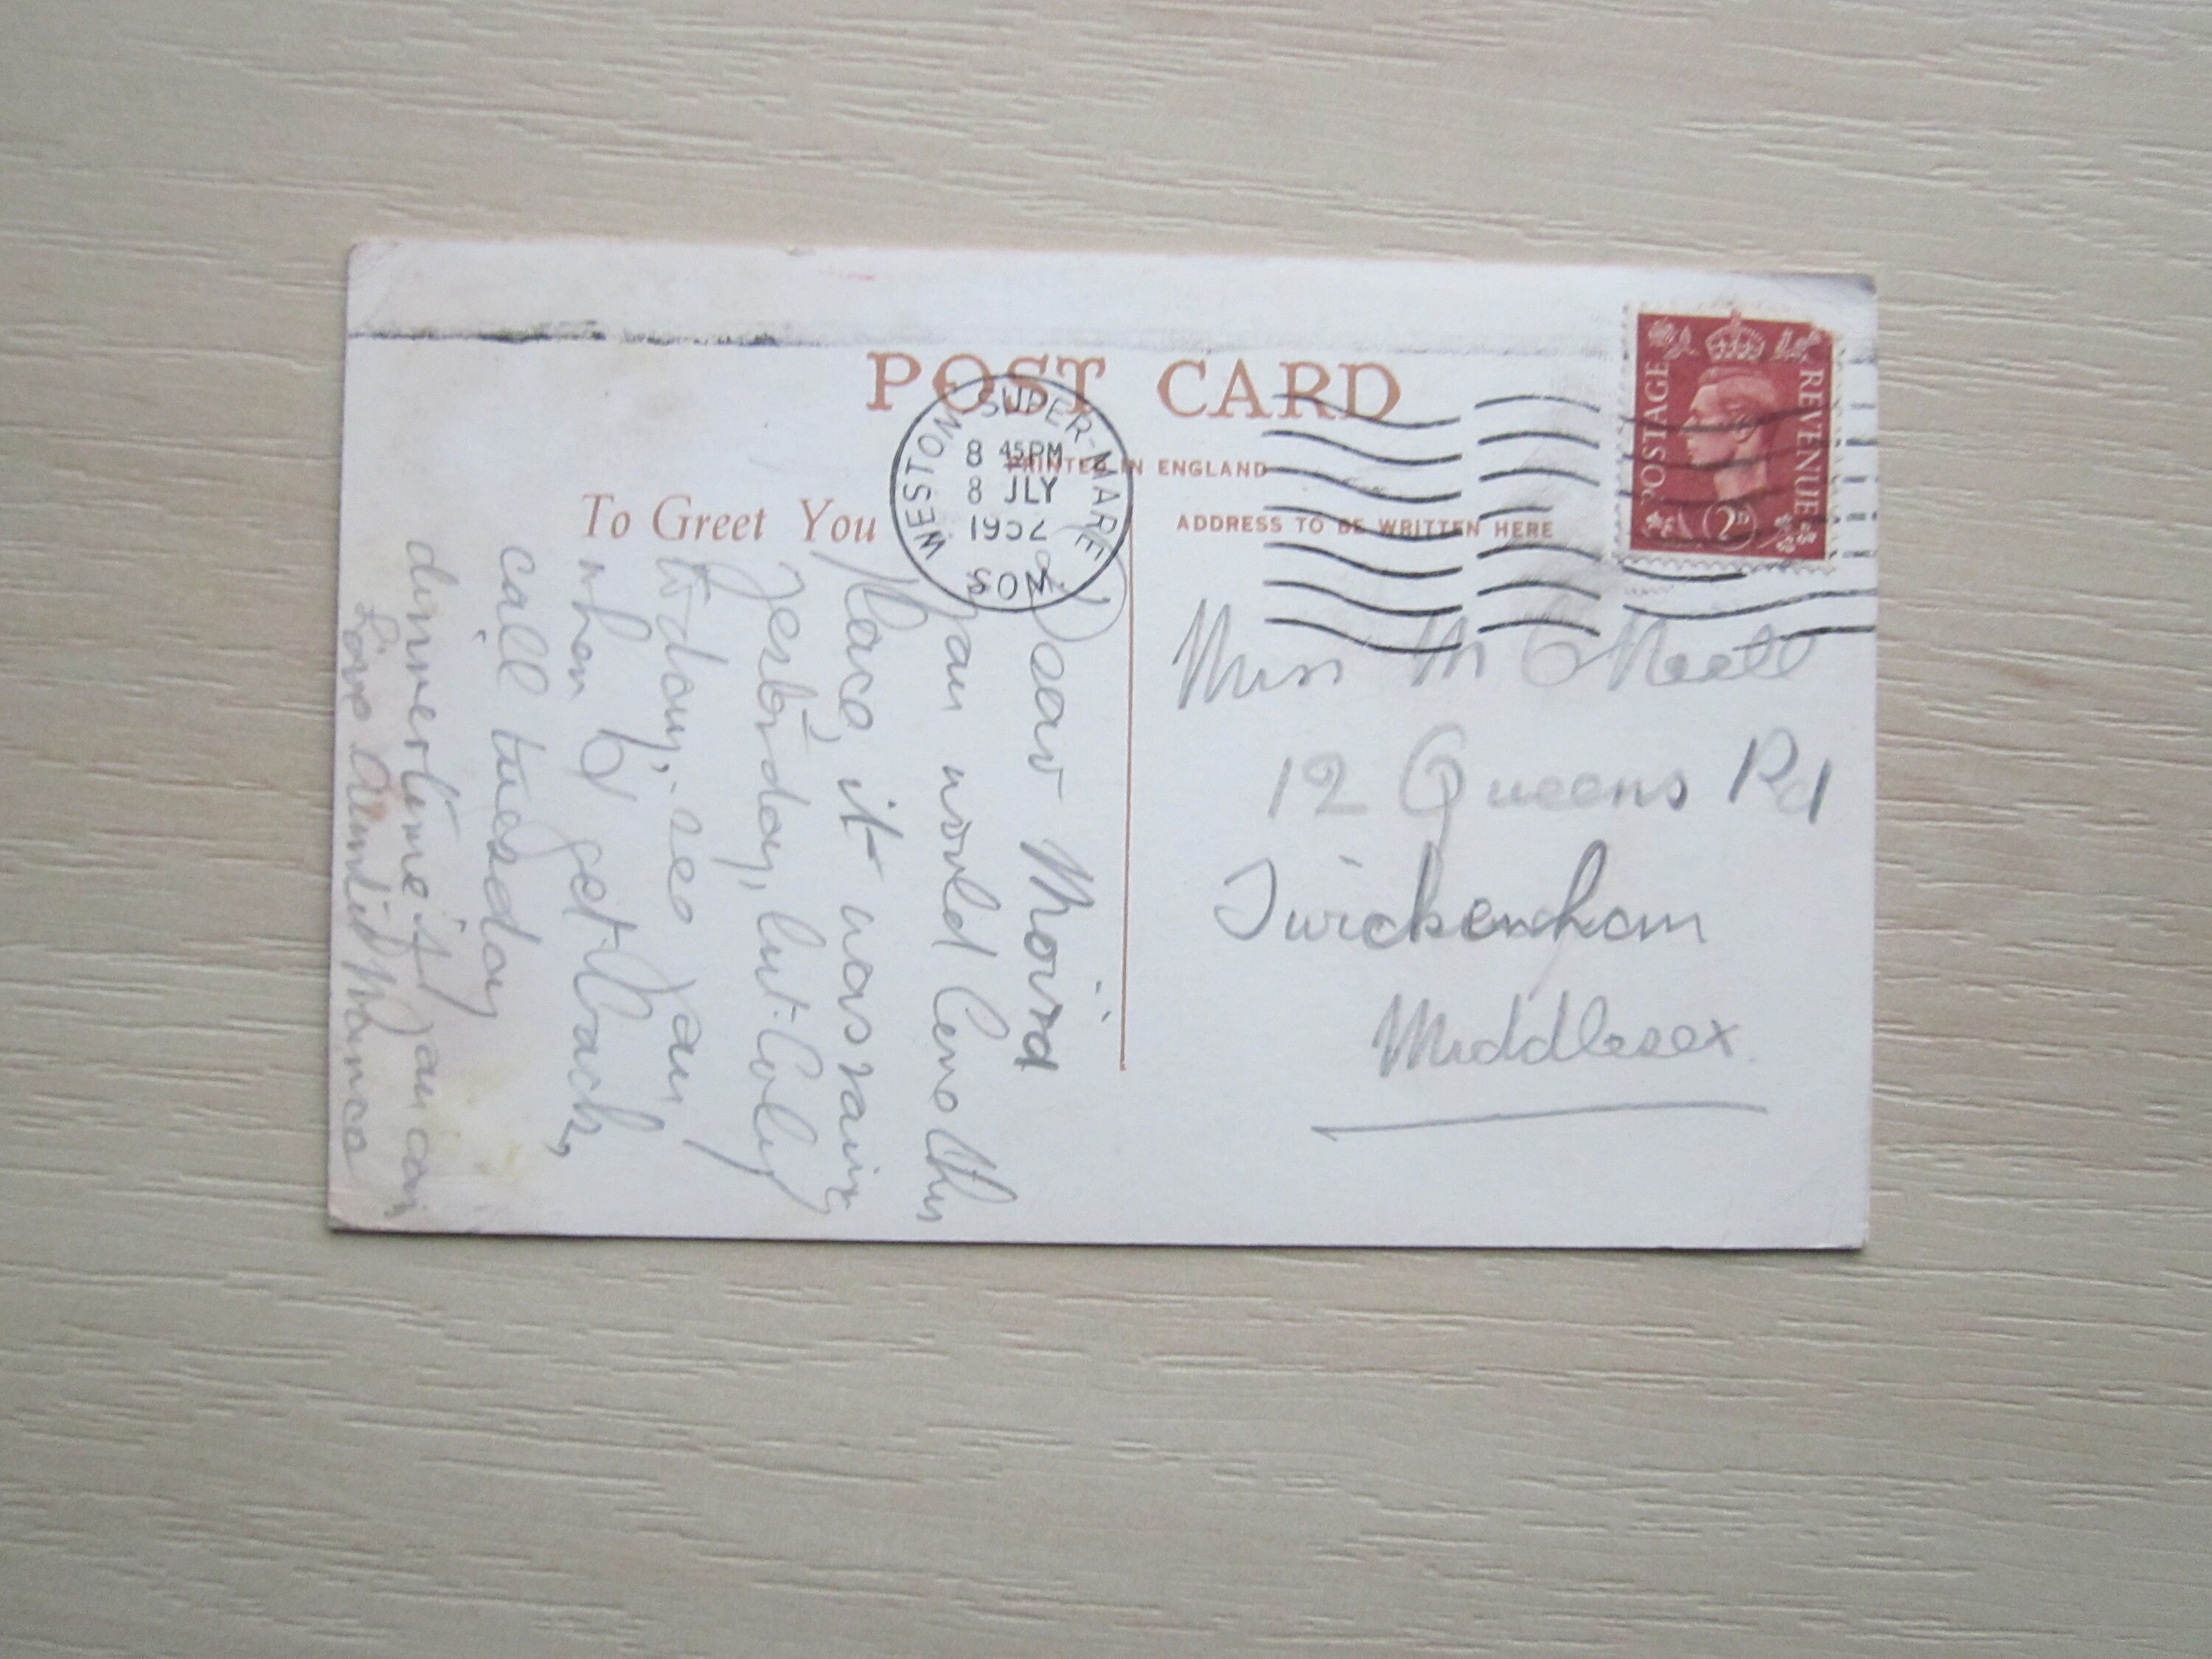 POST CARD
PRINTED IN ENGLAND
To Greet You
ADDRESS TO BE WRITTEN HERE
WESTON-SUPER-MARE
8 45PM
8 JLY
1952
SOM
POSTAGE REVENUE
2D
Dear Moira
you would love this
place, it was rainy
yesterday, but lovely
today, see you
when I get back,
call tuesday
dinnertime if you can
Love Auntie
Miss M O'Neill
12 Queens Rd
Twickenham
Middlesex